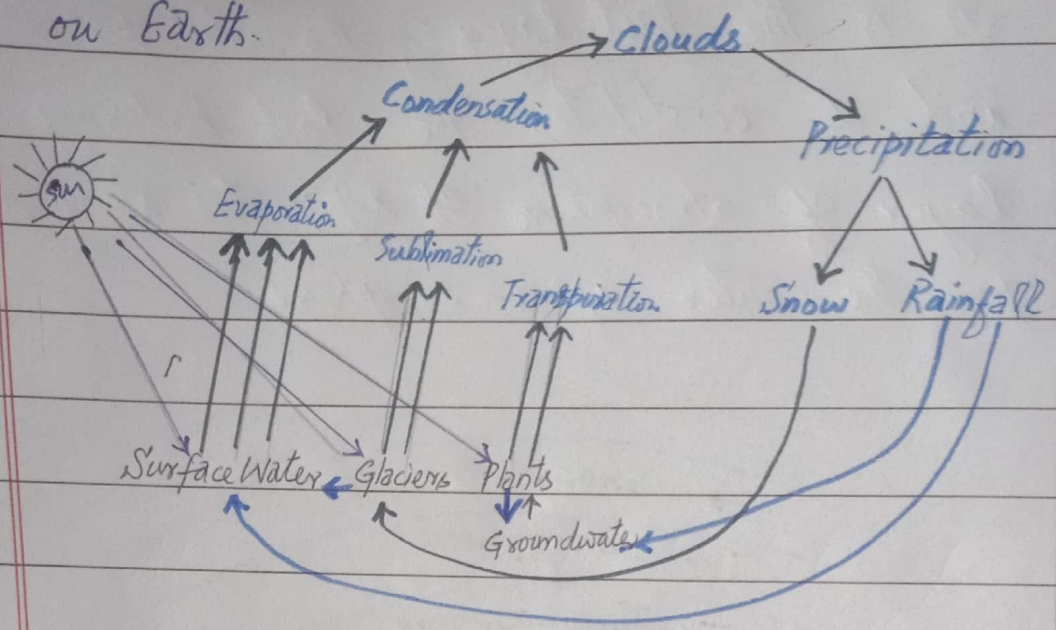 on Earth.
Clouds
Condensation
Precipitation
Sun
Evaporation
Sublimation
Transpiration
Snow Rainfall
Surface Water Glaciers Plants
Groundwater